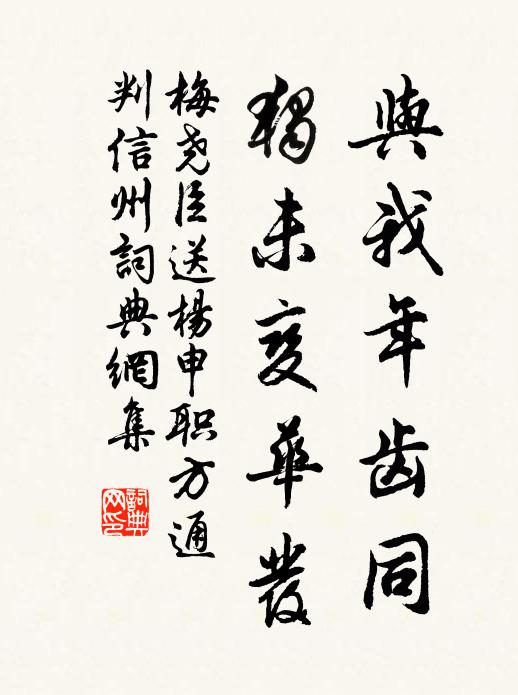 與我年齿同
獨未变華發
梅尧臣送楊申职方通
判信州詞典網集
詞典
网印